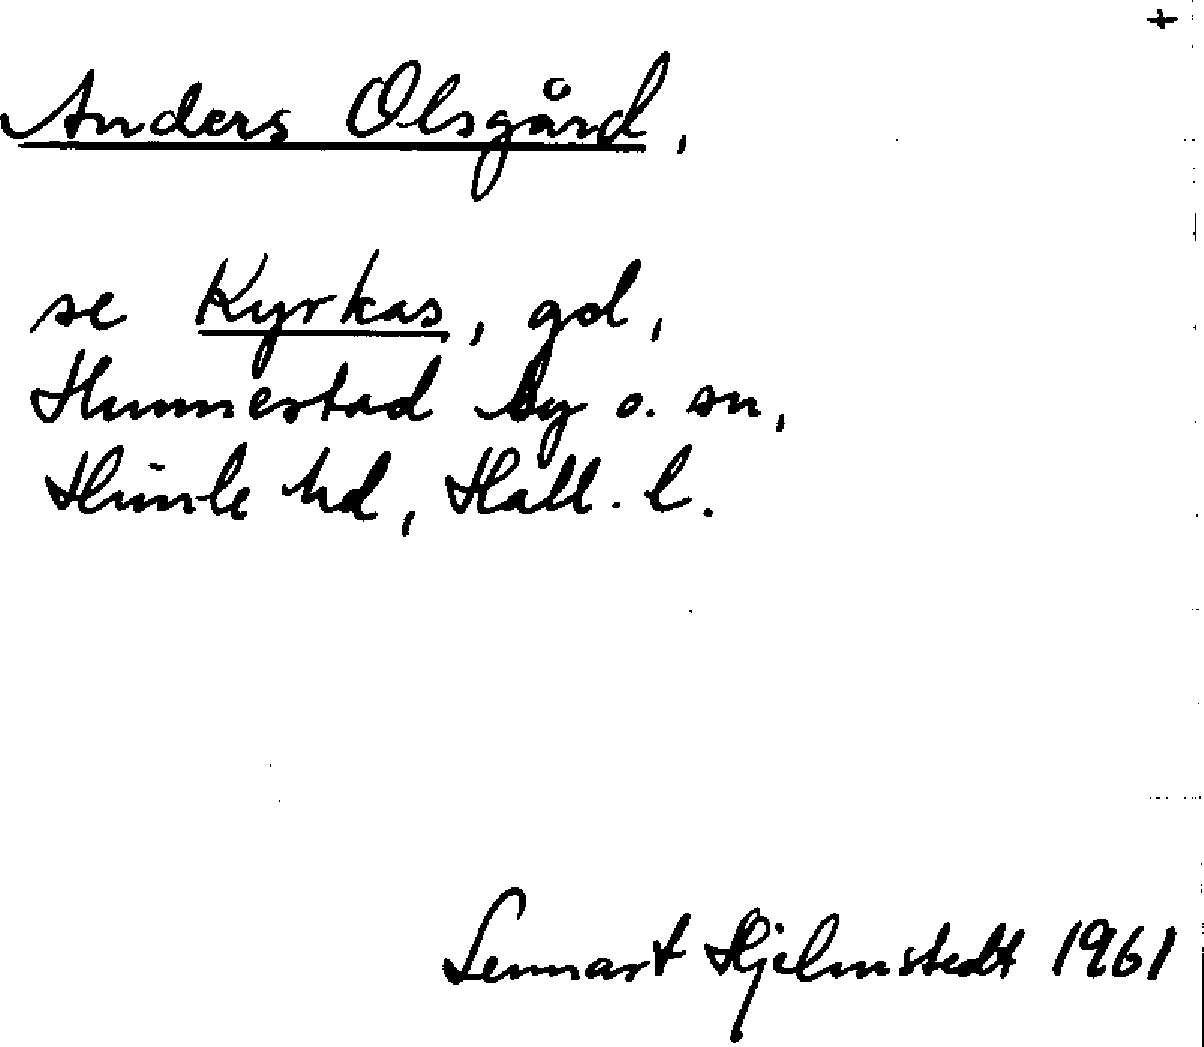 +
Anders Olsgård,
se Kyrkas, gd,
Hunnestad by o. sn,
Himle hd, Hall. l.
Lennart Hjelmstedt 1961